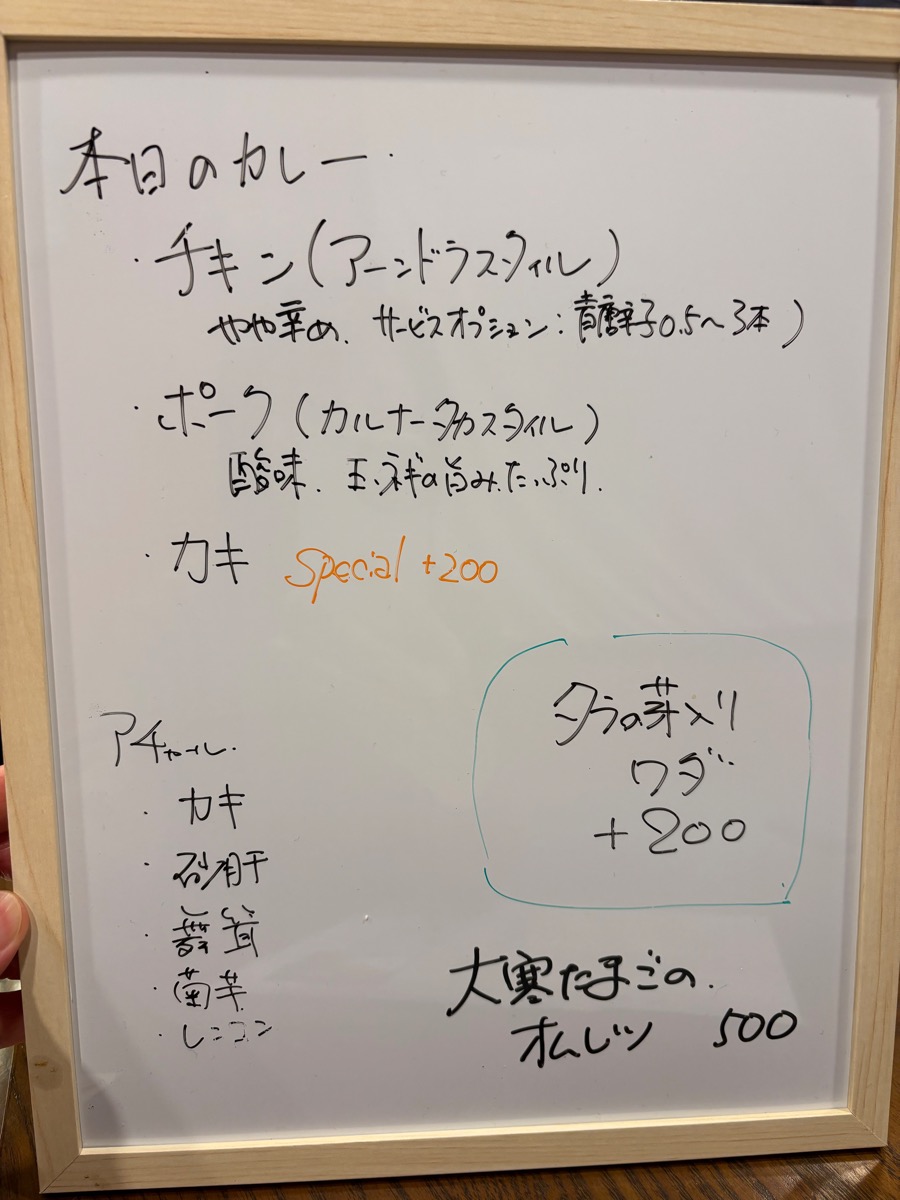 本日のカレー
・チキン(アーンドラスタイル)
やや辛め、サービスオプション:青唐辛子0.5〜3本)
・ポーク(カルナータカスタイル)
酸味、玉ネギの旨みたっぷり.
・カキ Special +200
アチャール.
・カキ
・砂肝
・舞茸
・菊芋
・レンコン
タラの芽入り
ワダ
+200
大寒たまごの
オムレツ 500